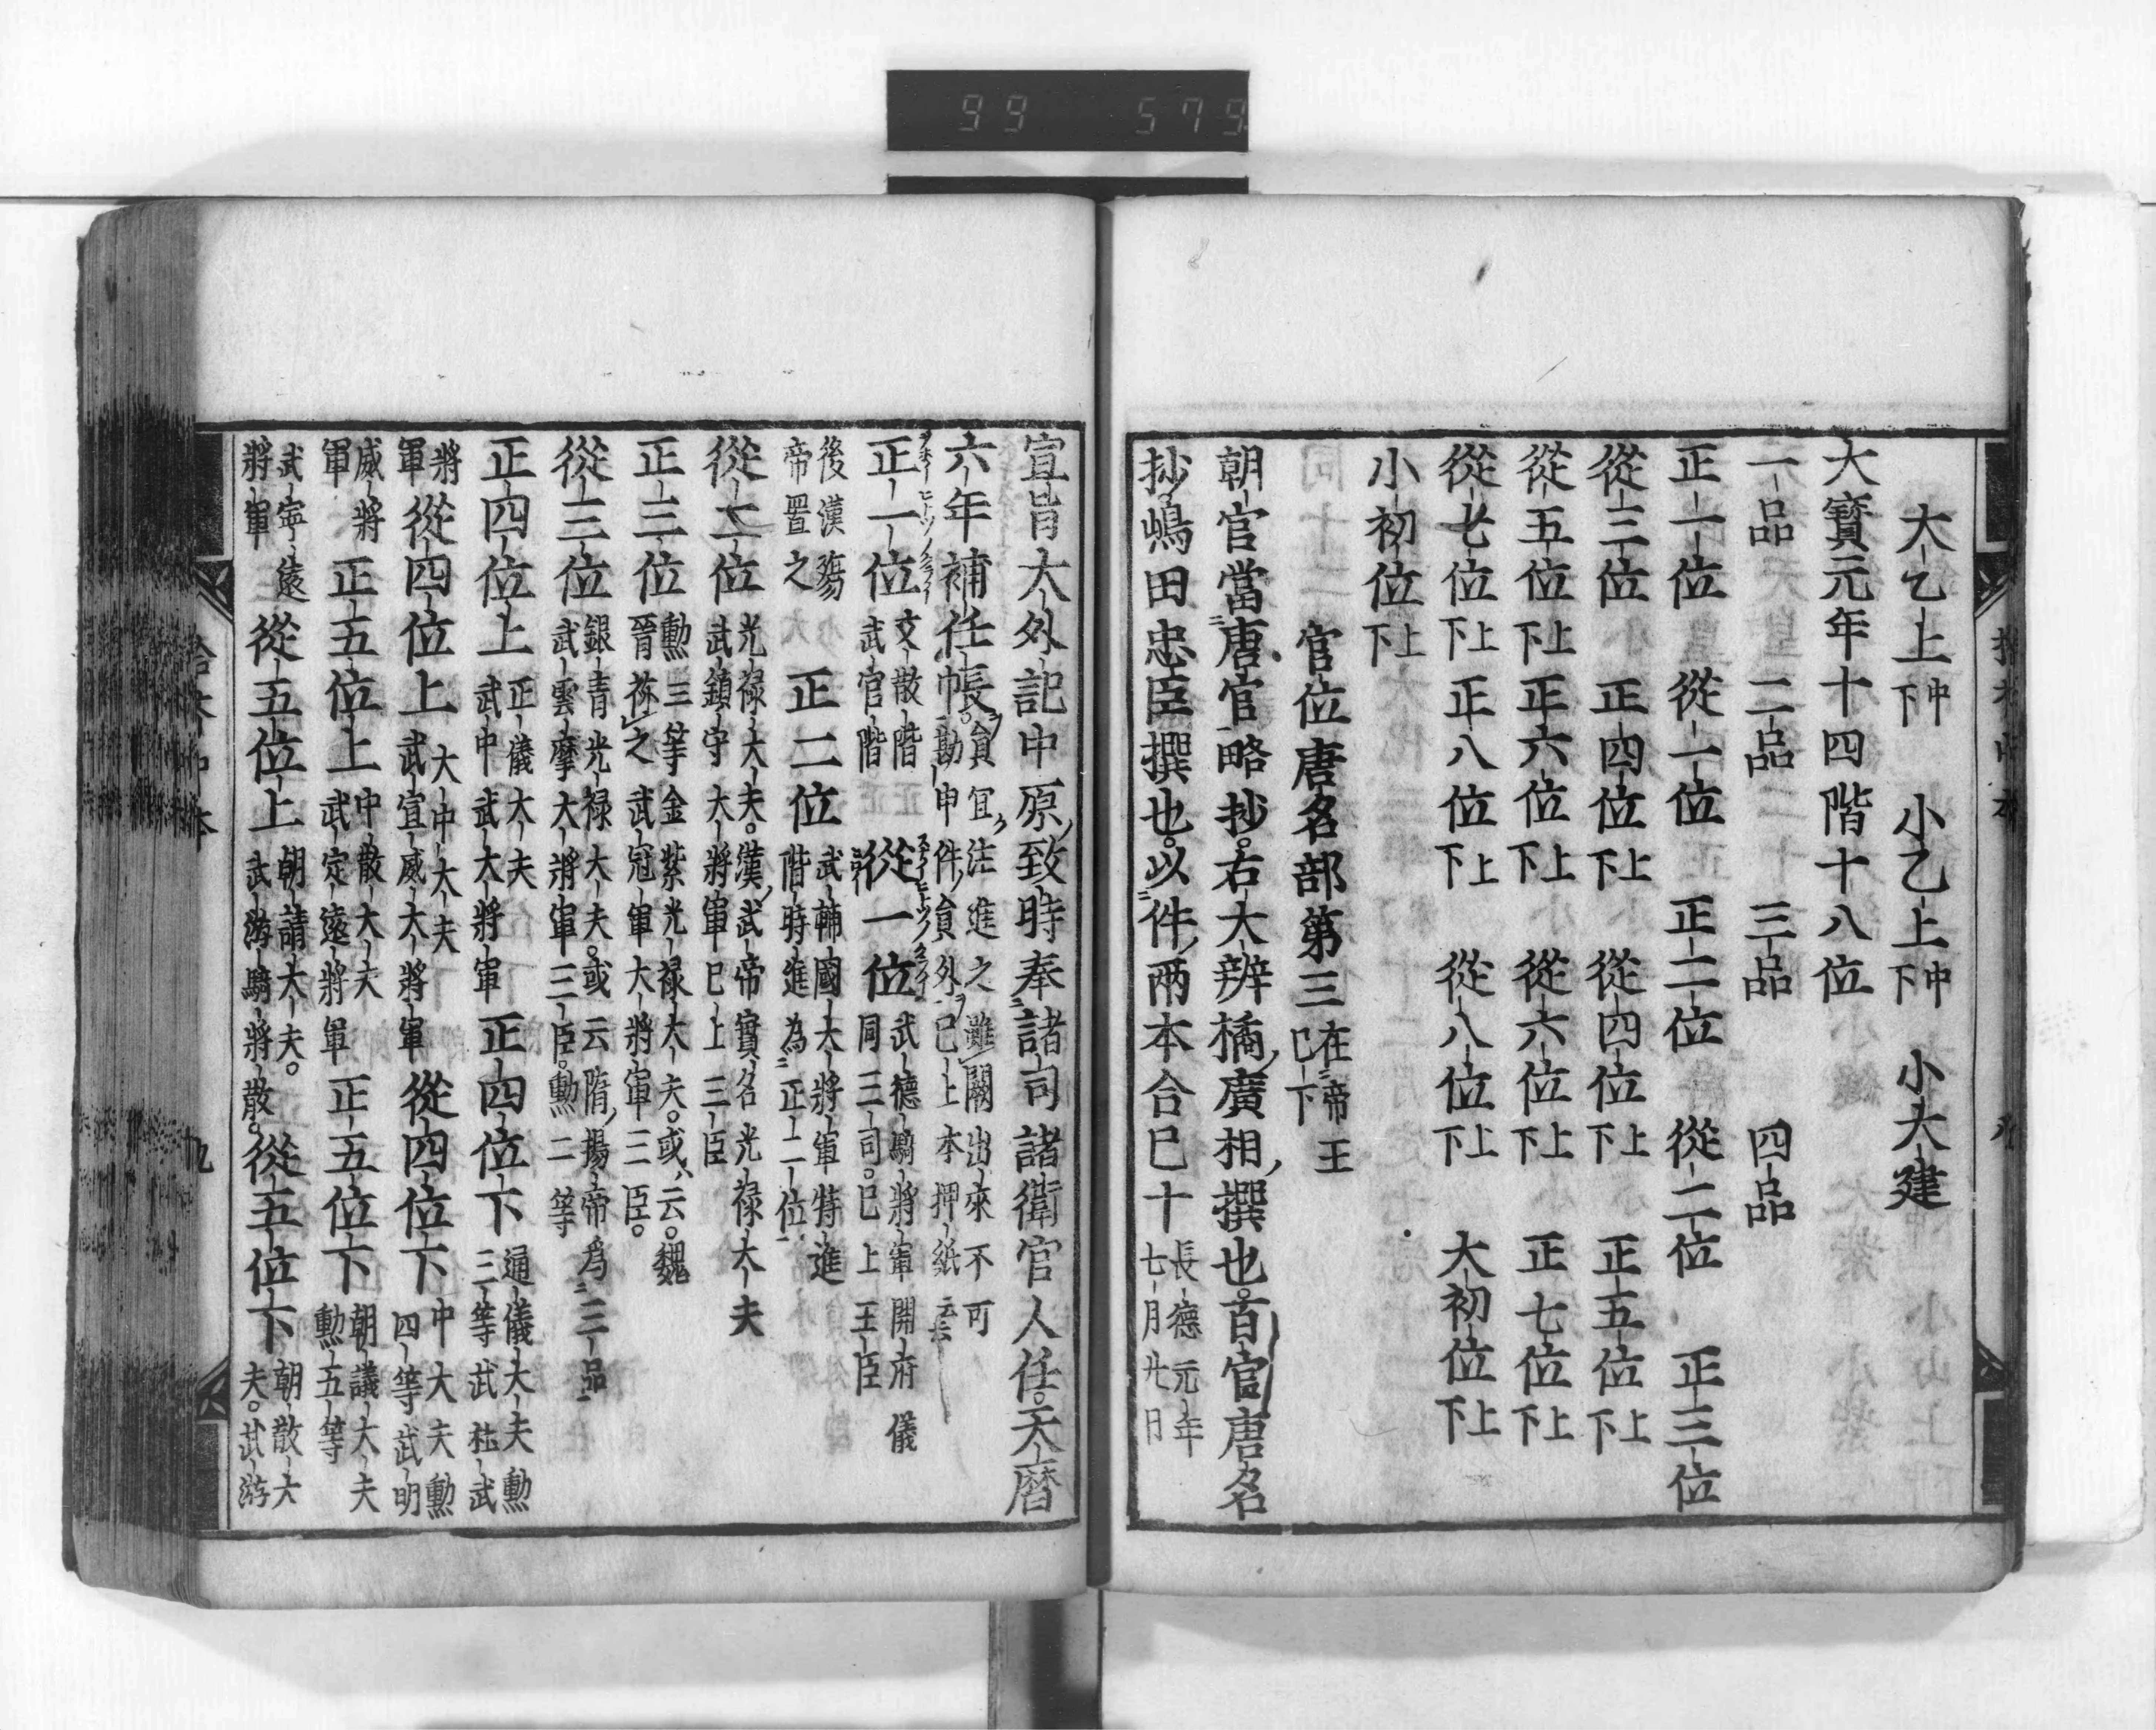 99 579
大乙上中下 小乙上中下 小大建
大寶元年十四階十八位
一品 二品 三品 四品
正一位 從一位 正二位 從二位 正三位
從三位 正四位上下 從四位上下 正五位上下
從五位上下 正六位上下 從六位上下 正七位上下
從七位上下 正八位上下 從八位上下 大初位上下
小初位上下
官位唐名部第三 在帝王已下
朝官當唐官略抄。右大辨橘廣相撰也。百官唐名
抄嶋田忠臣撰也。以件兩本合已十 長德元年七月廿日
宣旨大外記中原致時奉諸司諸衛官人任。天曆
六年補任帳。勘申 件負外已上本押紙
注進之雖闕出來不可
正一位 文散階 武官階 從一位 武德騎將軍開府儀同三司。已上王臣
後漢殤帝置之 正二位 武輔國大將軍特進階時進為正二位
從二位 光祿大夫。漢武帝實名光祿大夫 武鎮守大將軍已上三臣
正三位 勳三等金紫光祿大夫。或云。魏晉祢之武冠軍大將軍三臣。
從三位 銀青光祿大夫。或云隋揚帝為三品 武雲摩大將軍三臣。勳二等
正四位上 正儀大夫 武中武大將軍 正四位下 通儀大夫勳三等武壯武
將軍 從四位上 大中大夫 武宣威大將軍 從四位下 中大夫勳四等武明
威將軍 正五位上 中散大夫 武定遠將軍 正五位下 朝議大夫勳五等
武寧遠將軍 從五位上 朝請大夫。武游騎將散。從五位下 朝散大夫。武游
九